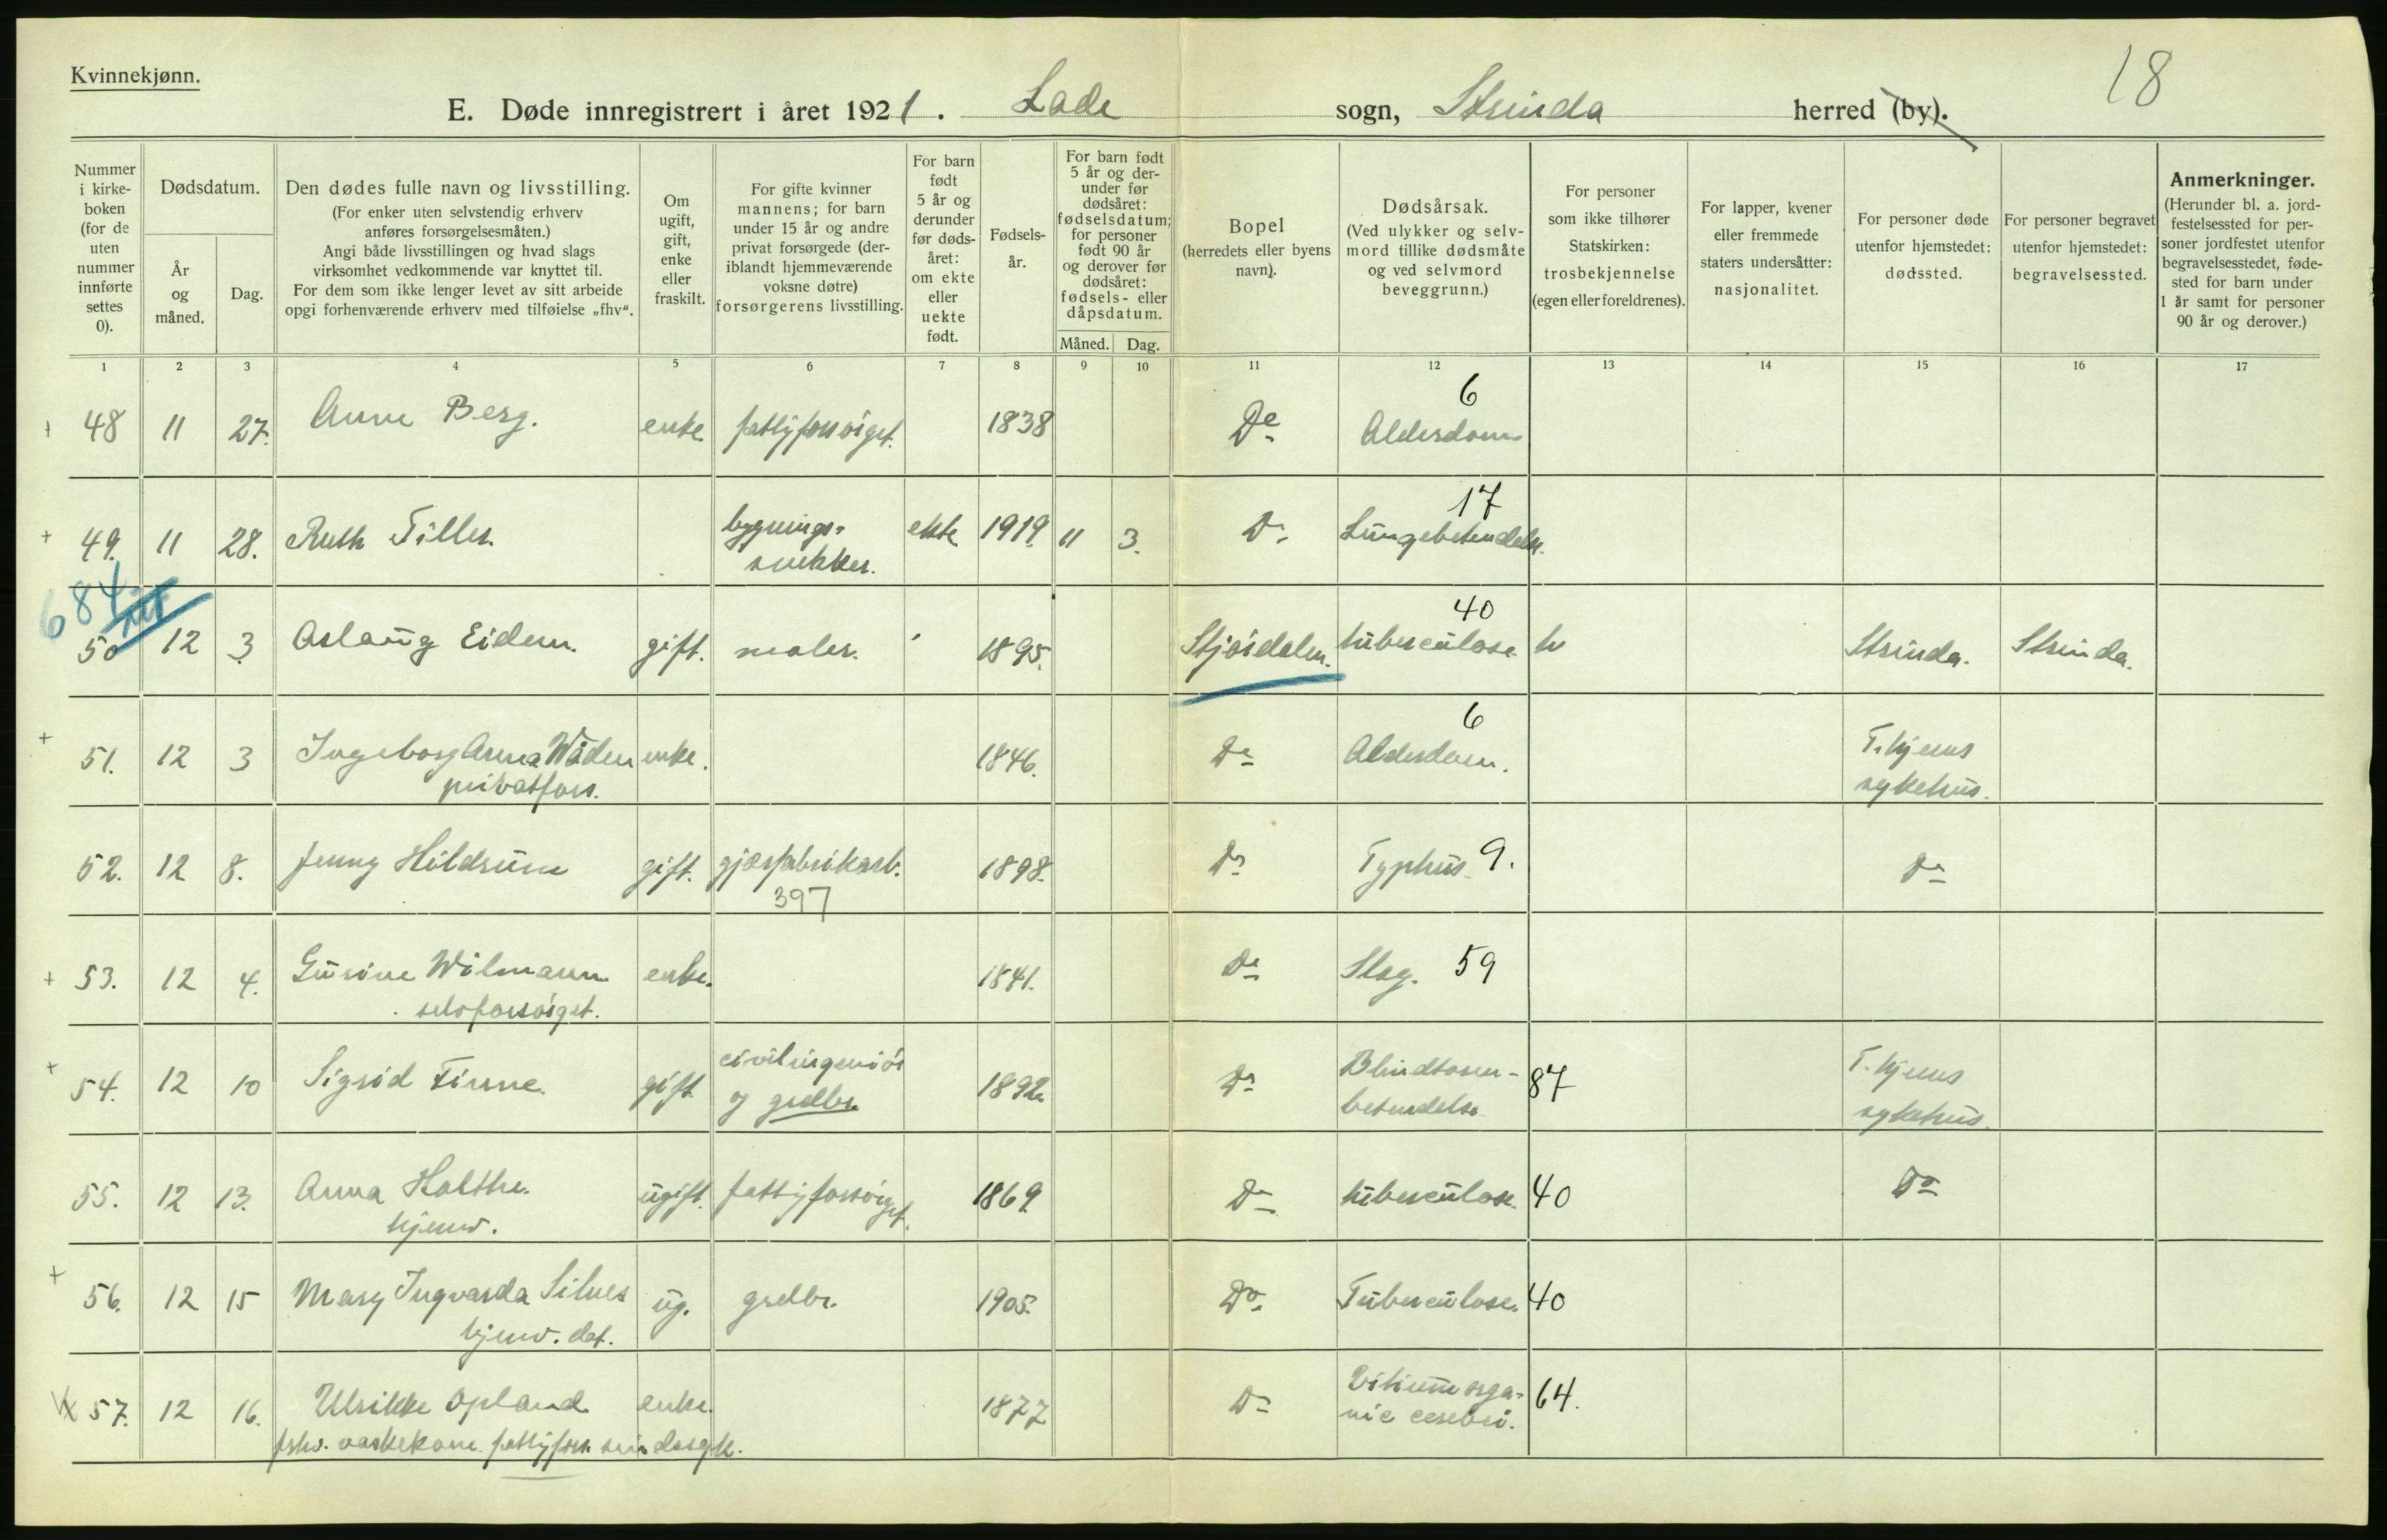 Kvinnekjønn.
18
E. Døde innregistrert i året 1921. Lade sogn, Strinda herred (by).
Nummer i kirke- boken (for de uten nummer innførte settes 0).
Dødsdatum.
År og måned.
Dag.
Den dødes fulle navn og livsstilling.
(For enker uten selvstendig erhverv anføres forsørgelsesmåten.)
Angi både livsstillingen og hvad slags virksomhet vedkommende var knyttet til.
For dem som ikke lenger levet av sitt arbeide opgi forhenværende erhverv med tilføielse „fhv“.
Om ugift, gift, enke eller fraskilt.
For gifte kvinner mannens; for barn under 15 år og andre privat forsørgede (der- iblandt hjemmeværende voksne døtre) forsørgerens livsstilling.
For barn født 5 år og derunder før døds- året: om ekte eller uekte født.
Fødsels- år.
For barn født 5 år og der- under før dødsåret: fødselsdatum; for personer født 90 år og derover før dødsåret: fødsels- eller dåpsdatum.
Måned. Dag.
Bopel (herredets eller byens navn).
Dødsårsak. (Ved ulykker og selv- mord tillike dødsmåte og ved selvmord beveggrunn.)
For personer som ikke tilhører Statskirken: trosbekjennelse (egen eller foreldrenes).
For lapper, kvener eller fremmede staters undersåtter: nasjonalitet.
For personer døde utenfor hjemstedet: dødssted.
For personer begravet utenfor hjemstedet: begravelsessted.
Anmerkninger. (Herunder bl. a. jord- festelsessted for per- soner jordfestet utenfor begravelsesstedet, føde- sted for barn under 1 år samt for personer 90 år og derover.)
1 2 3 4 5 6 7 8 9 10 11 12 13 14 15 16 17
6
+ 48 11 27. Anne Berg. enke fattigforsörget. 1838 Do Alderdom
17
+ 49. 11 28. Ruth Tiller. bygnings- ekte 1919. 11 3. Do Lungebetendelse.
snekker.
684
40
50 12 3. Aslaug Eidem. gift. maler. 1895. Stjördalen. tuberculose tv Strinda. Strinda.
6
+ 51. 12 3 Ingeborg Anna Wåden enke. 1846. Do Alderdom. T.hjems
privatfors. sykehus.
52. 12 8. Jenny Hildrum gift. gjærfabrikarb. 1898. Do Typhus 9. Do
397
+ 53. 12 4. Gurine Wilmann enke. 1841. Do Slag. 59
selvforsörget.
+ 54. 12 10 Sigrid Finne. gift civilingeniör 1892. Do Blindtarm- 87 T.hjems
og grdbr. betendelse. sykehus.
55. 12 13. Anna Holthe. ugift. fattigforsörget. 1869. Do tuberculose. 40 Do
hjemv.
+ 56. 12 15 Mary Ingvarda Silnes ug. grdbr. 1905. Do Tuberculose. 40
hjemv. dat.
57. 12 16. Ulrikke Opland enke. 1877 Do Vitium orga- 64.
fhv. vaskekone. fattigfors. sindssyk. nic cerebri.